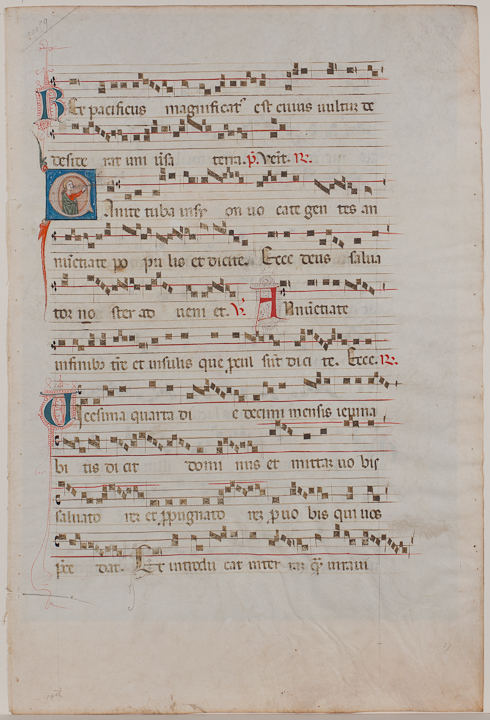 Rex pacificus magnificat' est cuius uultum de
side rat uni u'sa terra. p̃. Ueīt. R.
Canite tuba in sy on uo cate gen tes an
nūtiate po pu lis et dicite. Ecce deus salua
tor no ster ad ueni et. V. Annūtiate
in finibus t're et insulis que p'cul su't dici te. Ecce. R.
icesima quarta di e decimi mensis ieiunia
bi tis di cit domi nus et mittaz uo bis
saluato rez et p'pugnato rez p uo bis qui uos
p'ce dat. Et introdu cat in ter raz q̄